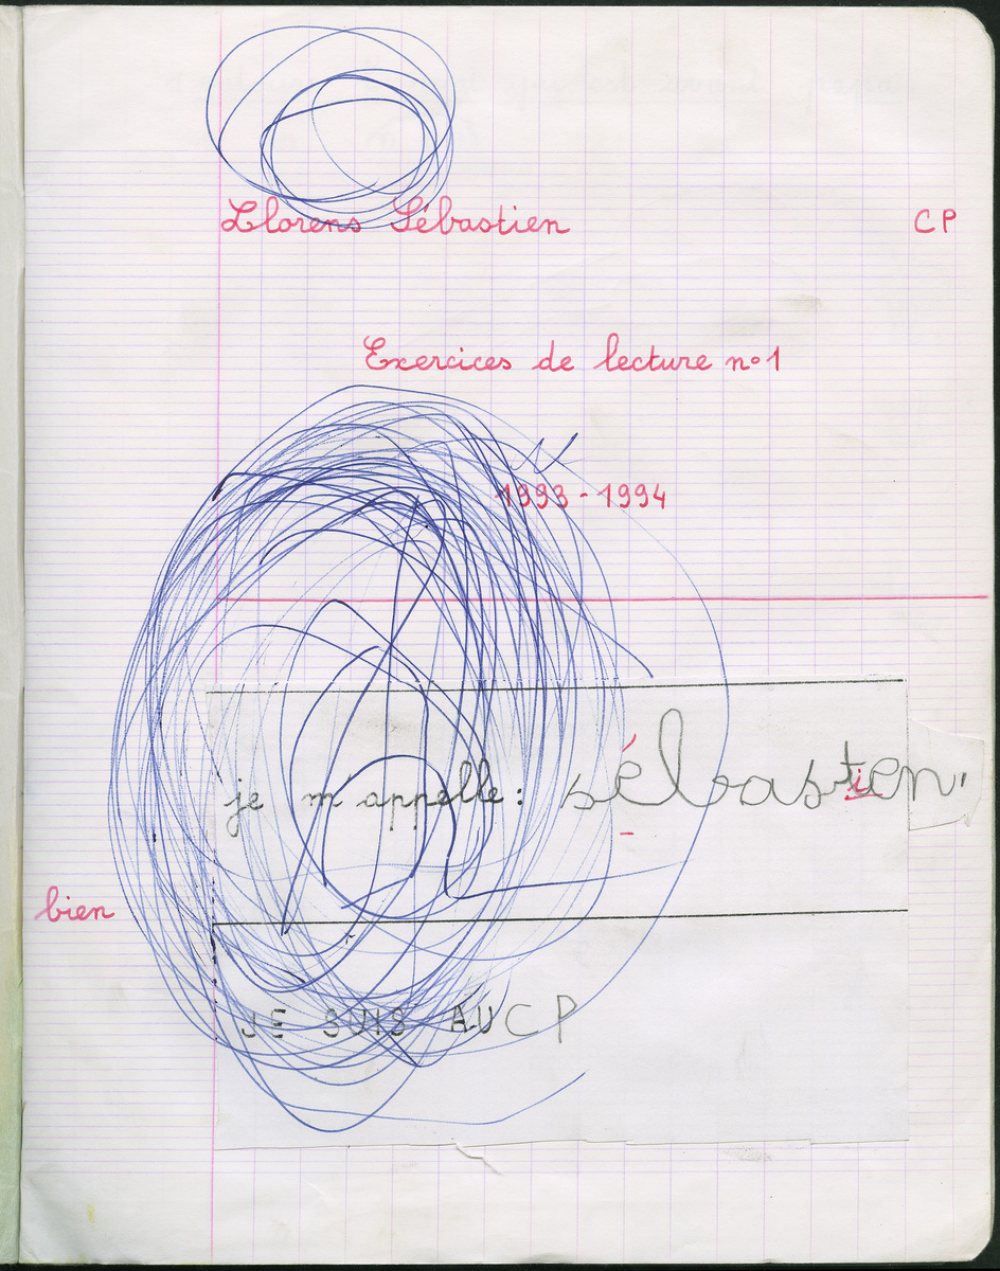 Llorens Sébastien CP
Exercices de lecture n°1
1993-1994
je m'appelle: sébastien.
bien
JE SUIS AU CP